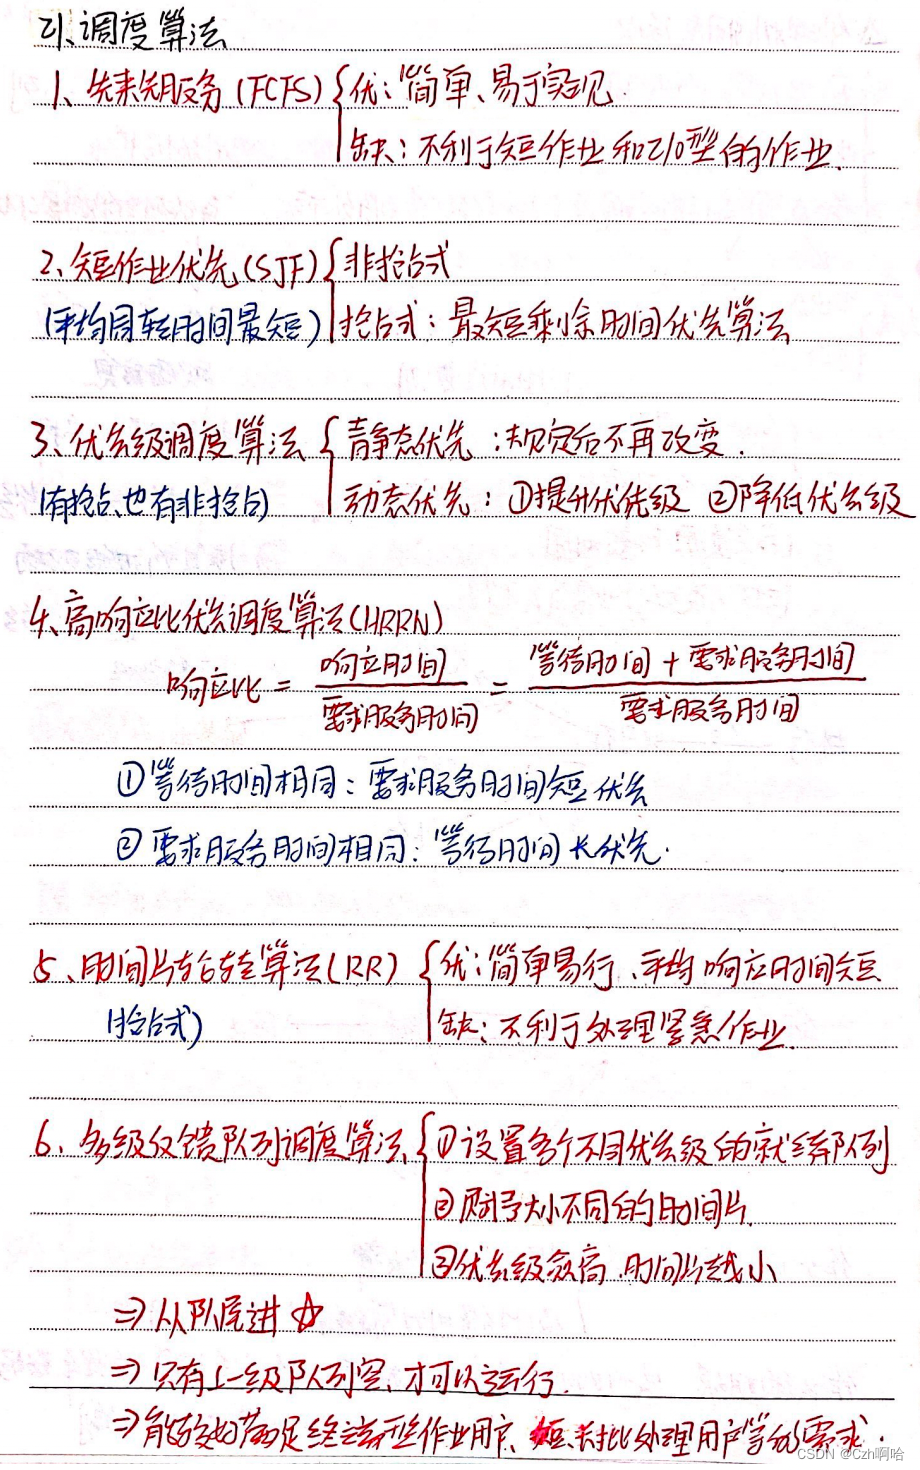 21、调度算法
1、先来先服务(FCFS) 优:简单、易于实现.
缺:不利于短作业和I/O型的作业.
2、短作业优先(SJF) 非抢占式
(平均周转时间最短) 抢占式:最短剩余时间优先算法
3、优先级调度算法 静态优先:规定后不再改变.
(有抢占、也有非抢占) 动态优先:①提升优先级 ②降低优先级
4、高响应比优先调度算法(HRRN)
响应比 = 响应时间 / 要求服务时间 = 等待时间 + 要求服务时间 / 要求服务时间
①等待时间相同:要求服务时间短优先
②要求服务时间相同:等待时间长优先.
5、时间片轮转算法(RR) 优:简单易行、平均响应时间短
(抢占式) 缺:不利于处理紧急作业.
6、多级反馈队列调度算法、 ①设置多个不同优先级的就绪队列
②赋予大小不同的时间片.
③优先级愈高,时间片越小
⇒从队尾进☆
⇒只有上一级队列空,才可以运行.
⇒能较好满足终端型作业用户、短、长批处理用户等的需求.
CSDN @Czh啊哈